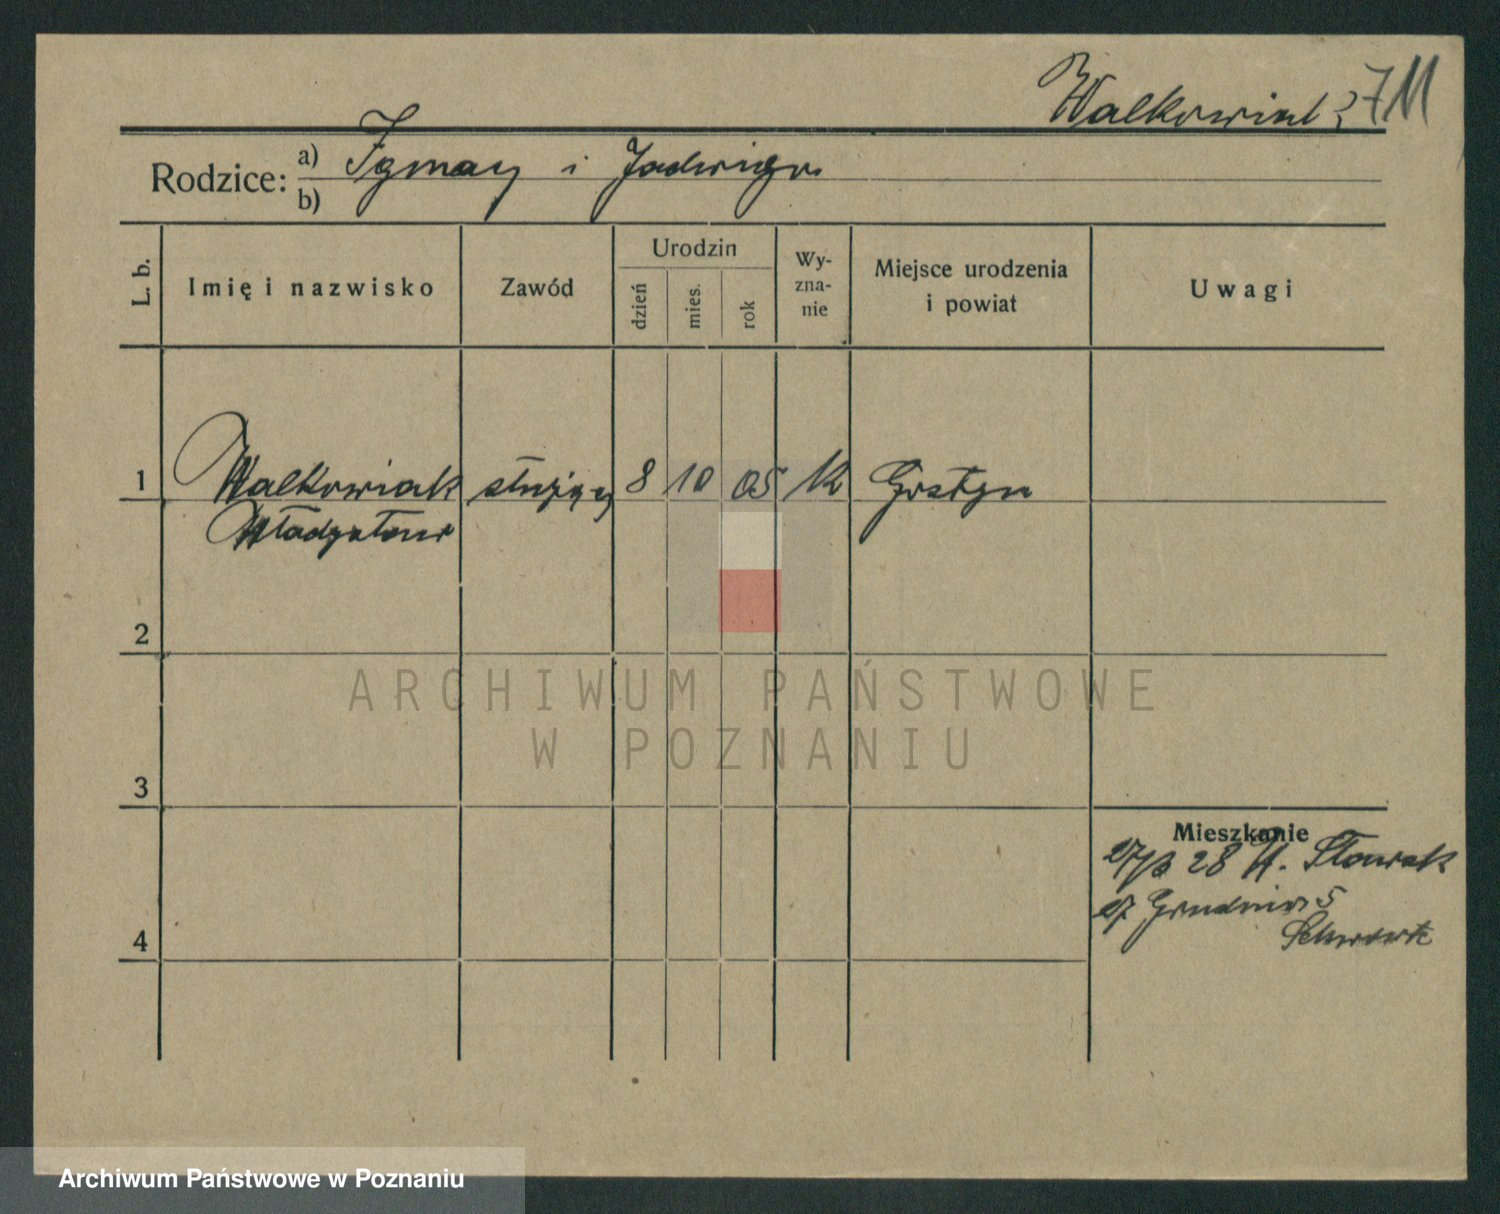 Walkowiak 3711
Rodzice: a) Ignacy i Jadwiga
b)
L. b. Imię i nazwisko Zawód Urodzin dzień mies. rok Wy-zna-nie Miejsce urodzenia i powiat Uwagi
1 Walkowiak służący 8 10 05 K Gostyn
Władysław
2
ARCHIWUM PAŃSTWOWE
W POZNANIU
3
Mieszkanie
28 Słowack
Grudnia 5
4
Archiwum Państwowe w Poznaniu